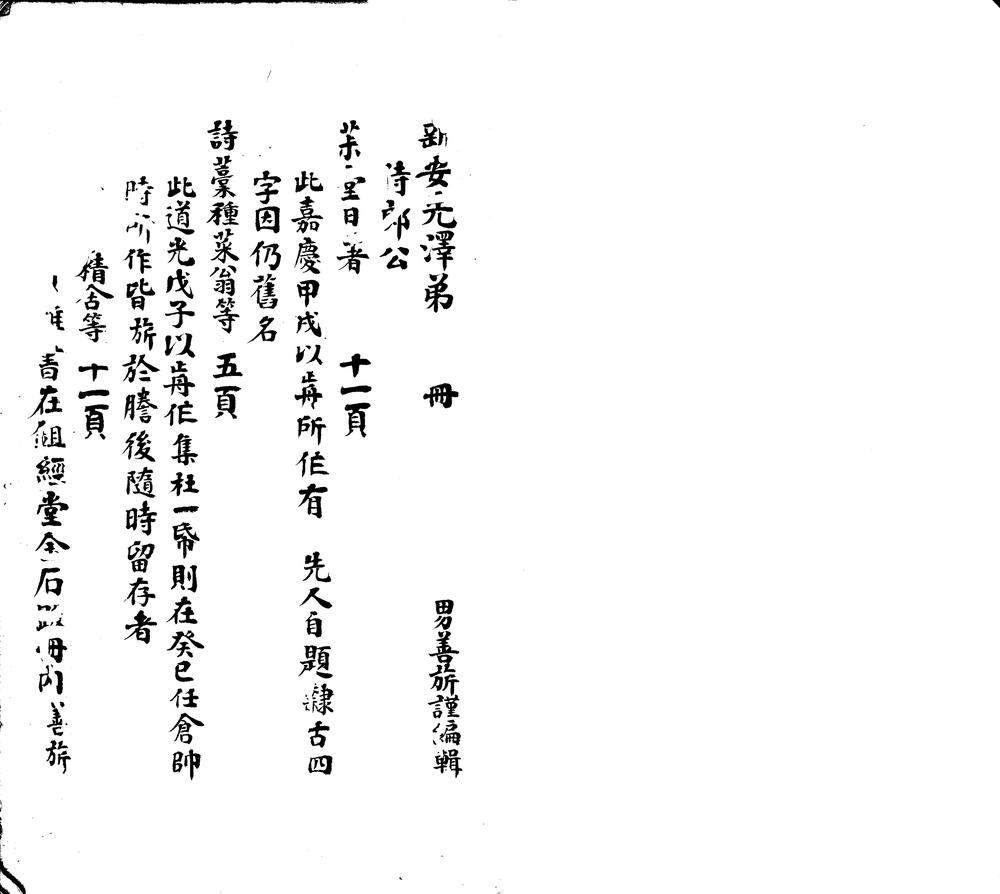 新安先澤弟　冊　男善旂謹編輯
侍郎公
茶堂日著　十一頁
此嘉慶甲戌以歬所作有　先人自題隸古四
字因仍舊名
詩藁種菜翁等　五頁
此道光戊子以歬作集杜一帋則在癸巳任倉帥
時所作皆旂於謄後隨時留存者
精舍等　十一頁
書在組經堂金石 冊內 善旂